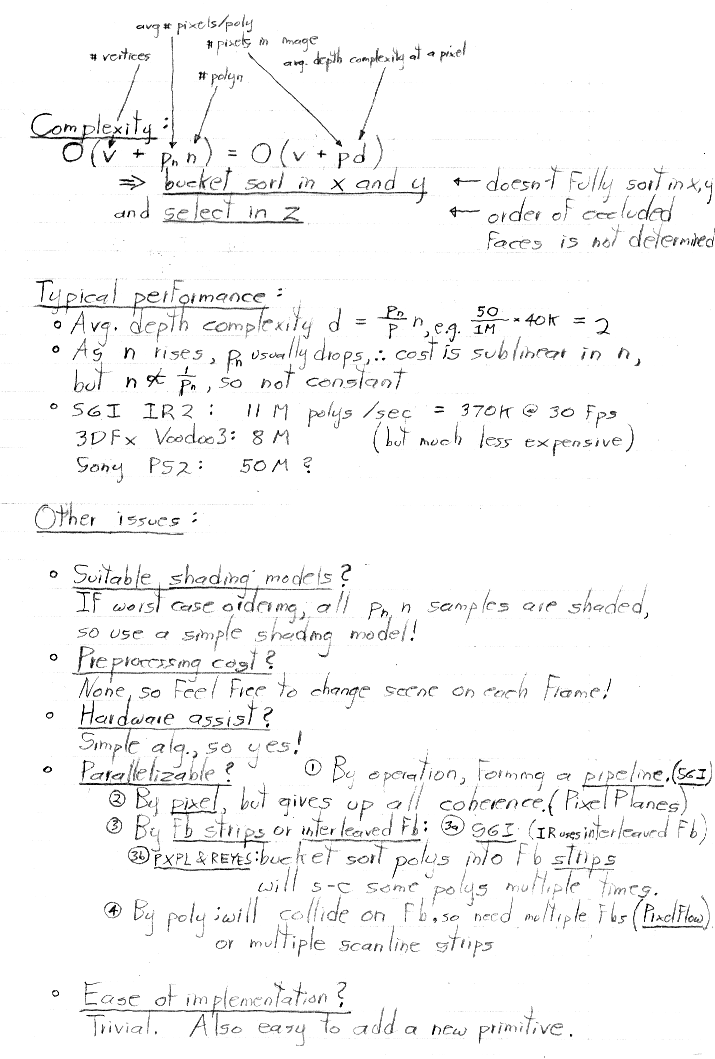 avg # pixels/poly
# pixels in image
# vertices
avg. depth complexity at a pixel
# polyn
Complexity:
O(v + pₙ n) = O(v + pd)
⇒ bucket sort in x and y ← doesn't fully sort in x,y
and select in z ← order of occluded
faces is not determined
Typical performance:
∘ Avg. depth complexity d = pₙ/p n, e.g. 50/1M * 40K = 2
∘ As n rises, pₙ usually drops, ∴ cost is sublinear in n,
but n ∝̸ 1/pₙ, so not constant
∘ SGI IR2: 11 M polys/sec = 370K @ 30 fps
3DFx Voodoo3: 8 M (but much less expensive)
Sony PS2: 50 M ?
Other issues:
∘ Suitable shading models?
If worst case ordering, all pₙ n samples are shaded,
so use a simple shading model!
∘ Preprocessing cost?
None, so feel free to change scene on each frame!
∘ Hardware assist?
Simple alg., so yes!
∘ Parallelizable? ① By operation, forming a pipeline. (SGI)
② By pixel, but gives up all coherence. (PixelPlanes)
③ By Fb strips or interleaved Fb: 3a SGI (IR uses interleaved Fb)
3b PXPL & REYES: bucket sort polys into Fb strips
will s-c some polys multiple times.
④ By poly: will collide on Fb, so need multiple Fbs (PixelFlow)
or multiple scanline strips
∘ Ease of implementation?
Trivial. Also easy to add a new primitive.